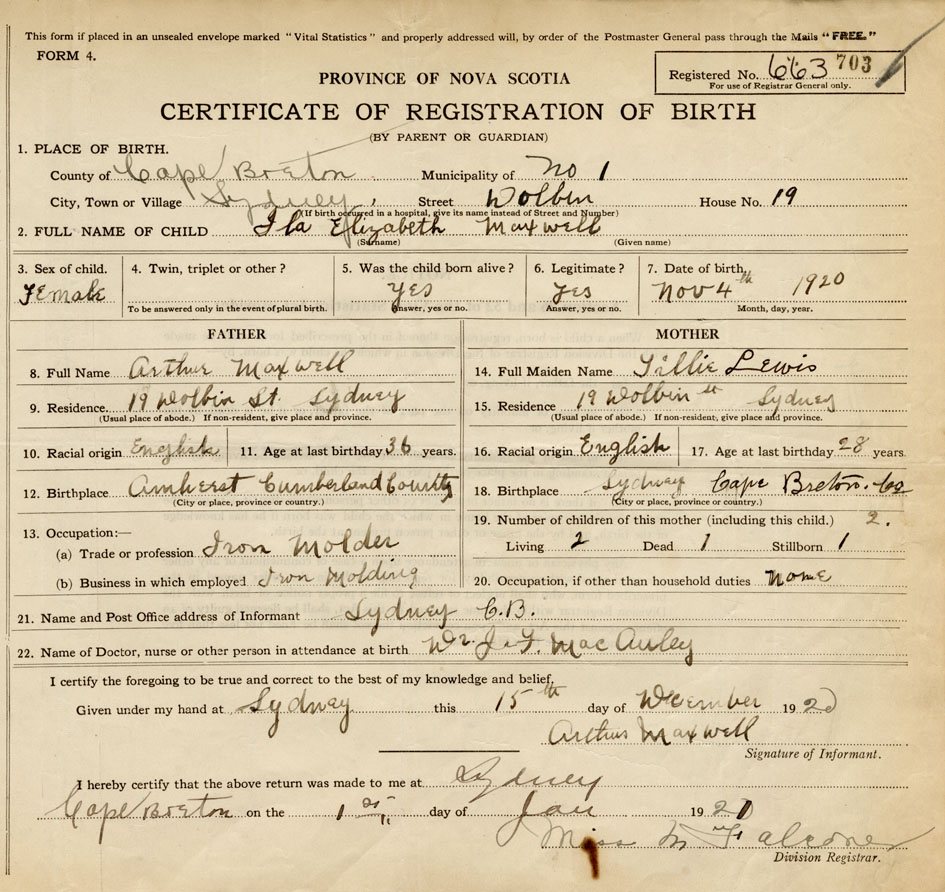 This form if placed in an unsealed envelope marked "Vital Statistics" and properly addressed will, by order of the Postmaster General pass through the Mails "FREE."
FORM 4.
Registered No. 663 703
For use of Registrar General only.
PROVINCE OF NOVA SCOTIA
CERTIFICATE OF REGISTRATION OF BIRTH
(BY PARENT OR GUARDIAN)
1. PLACE OF BIRTH.
County of Cape Breton Municipality of No 1
City, Town or Village Sydney, Street Wolbin House No. 19
(If birth occurred in a hospital, give its name instead of Street and Number)
2. FULL NAME OF CHILD Ila Elizabeth Maxwell
(Surname) (Given name)
3. Sex of child. 4. Twin, triplet or other? 5. Was the child born alive? 6. Legitimate? 7. Date of birth
Female yes yes Nov 4th 1920
To be answered only in the event of plural birth. Answer, yes or no. Answer, yes or no. Month, day, year.
FATHER MOTHER
8. Full Name Arthur Maxwell
9. Residence. 19 Wolbin St. Sydney
(Usual place of abode.) If non-resident, give place and province.
10. Racial origin English 11. Age at last birthday 36 years.
12. Birthplace Amherst Cumberland County
(City or place, province or country.)
13. Occupation:—
(a) Trade or profession Iron Molder
(b) Business in which employed Iron Molding
14. Full Maiden Name Lewis
15. Residence 19 Wolbin st Sydney
(Usual place of abode.) If non-resident, give place and province.
16. Racial origin English 17. Age at last birthday 28 years
18. Birthplace Sydney Cape Breton. Co
(City or place, province or country.)
19. Number of children of this mother (including this child.) 2.
Living 2 Dead 1 Stillborn 1
20. Occupation, if other than household duties none
21. Name and Post Office address of Informant Sydney C.B.
22. Name of Doctor, nurse or other person in attendance at birth Dr. J. F. MacAuley
I certify the foregoing to be true and correct to the best of my knowledge and belief,
Given under my hand at Sydney this 15th day of December 1920
Arthur Maxwell
Signature of Informant.
I hereby certify that the above return was made to me at Sydney
Cape Breton on the 1st day of Jan 1921
Miss M Falconer
Division Registrar.